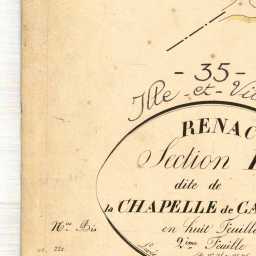 - 35 -
Ille - et - Vi
RENAC
Section
dite de
la CHAPELLE de GA
en huit Feuill
2ème Feuille
Nce Bis